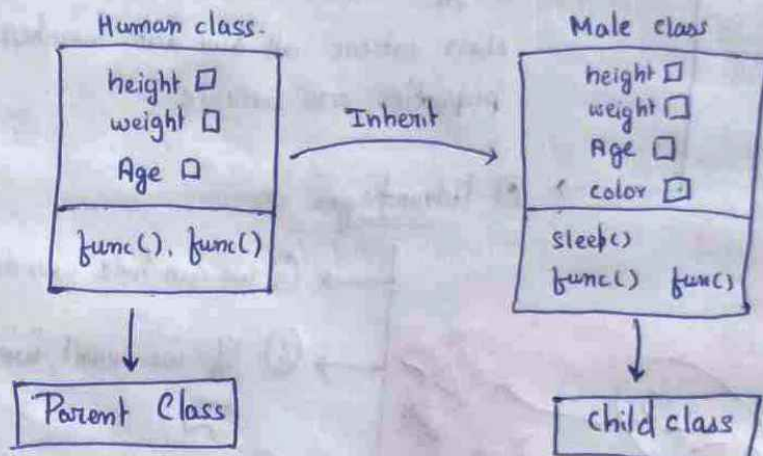 Human class.
height
weight
Age
func(), func()
Parent Class
Inherit
Male class
height
weight
Age
color
sleep()
func() fun()
child class